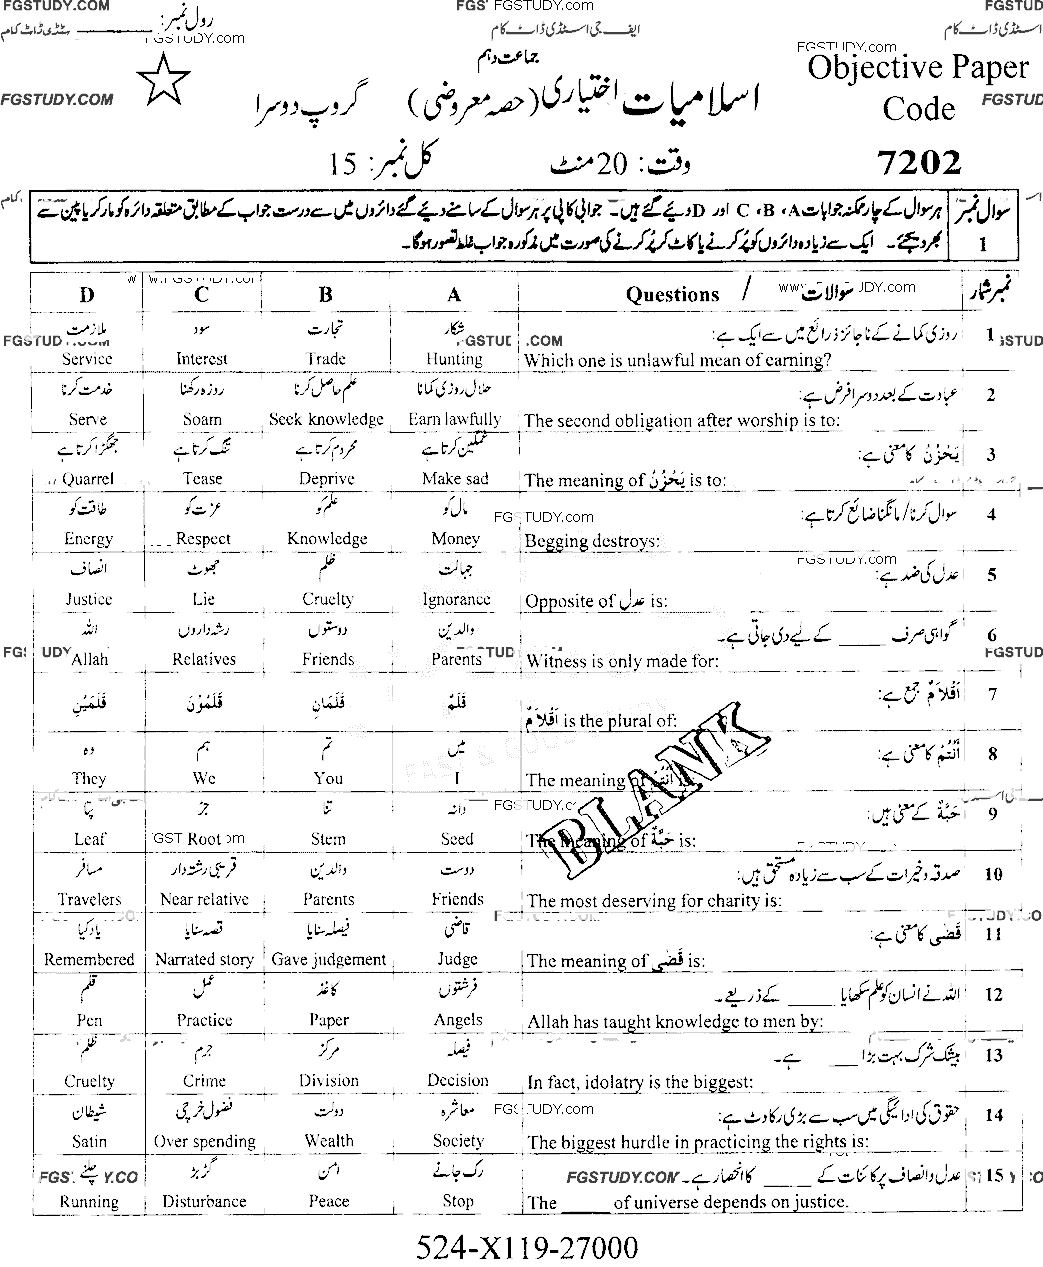 FGSTUDY.COM FGS' FGSTUDY.com FGSTUD
سٹڈی ڈاٹ کام رول نمبر: ________ ایف جی اسٹڈی ڈاٹ کام اسٹڈی ڈاٹ کام
FGSTUDY.com FGSTUDY.com
جماعت دہم
Objective Paper
اسلامیات اختیاری (حصہ معروضی) گروپ دوسرا
FGSTUDY.COM Code FGSTUD
وقت: 20 منٹ کل نمبر: 15 7202
سوال نمبر 1
ہر سوال کے چار ممکنہ جوابات A، B، C اور D دیئے گئے ہیں۔ جوابی کاپی پر ہر سوال کے سامنے دیئے گئے دائروں میں سے درست جواب کے مطابق متعلقہ دائرہ کو مارکر یا پین سے
بھر دیجئے۔ ایک سے زیادہ دائروں کو پُر کرنے یا کاٹ کر پُر کرنے کی صورت میں مذکورہ جواب غلط تصور ہوگا۔
D C B A Questions / سوالات نمبر شمار
ملازمت سود تجارت شکار روزی کمانے کے ناجائز ذرائع میں سے ایک ہے: 1
Service Interest Trade Hunting Which one is unlawful mean of earning?
خدمت کرنا روزہ رکھنا علم حاصل کرنا حلال روزی کمانا عبادت کے بعد دوسرا فرض ہے: 2
Serve Soam Seek knowledge Earn lawfully The second obligation after worship is to:
جھگڑا کرتا ہے تنگ کرتا ہے محروم کرتا ہے غمگین کرتا ہے یَحْزُنُ کا معنی ہے: 3
Quarrel Tease Deprive Make sad The meaning of یَحْزُنُ is to:
طاقت کو عزت کو علم کو مال کو سوال کرنا/مانگنا ضائع کرتا ہے: 4
Energy Respect Knowledge Money Begging destroys:
انصاف جھوٹ ظلم جہالت عدل کی ضد ہے: 5
Justice Lie Cruelty Ignorance Opposite of عدل is:
اللہ رشتہ داروں دوستوں والدین گواہی صرف _____ کے لیے دی جاتی ہے۔ 6
Allah Relatives Friends Parents Witness is only made for:
قَلَمَیْنِ قَلَمُوْنَ قَلَمَانِ قَلَمٌ اَقْلَامٌ جمع ہے: 7
اَقْلَامٌ is the plural of:
وہ ہم تم میں اَنْتُمْ کا معنی ہے: 8
They We You I The meaning of اَنْتُمْ is:
BLANK
پتا جڑ تنا دانہ حَبَّةٌ کے معنی ہیں: 9
Leaf Root Stem Seed The meaning of حَبَّةٌ is:
مسافر قریبی رشتہ دار والدین دوست صدقہ و خیرات کے سب سے زیادہ مستحق ہیں: 10
Travelers Near relative Parents Friends The most deserving for charity is:
یاد کیا قصہ سنایا فیصلہ سنایا قاضی قَضٰی کا معنی ہے: 11
Remembered Narrated story Gave judgement Judge The meaning of قَضٰی is:
قلم عمل کاغذ فرشتوں اللہ نے انسان کو علم سکھایا _____ کے ذریعے۔ 12
Pen Practice Paper Angels Allah has taught knowledge to men by:
ظلم جرم مرکز فیصلہ بیشک شرک بہت بڑا ___ ہے۔ 13
Cruelty Crime Division Decision In fact, idolatry is the biggest:
شیطان فضول خرچی دولت معاشرہ حقوق کی ادائیگی میں سب سے بڑی رکاوٹ ہے: 14
Satin Over spending Wealth Society The biggest hurdle in practicing the rights is:
چلنے گڑبڑ امن رک جانے عدل و انصاف پر کائنات کے _____ کا انحصار ہے۔ 15
Running Disturbance Peace Stop The _____ of universe depends on justice.
524-X119-27000